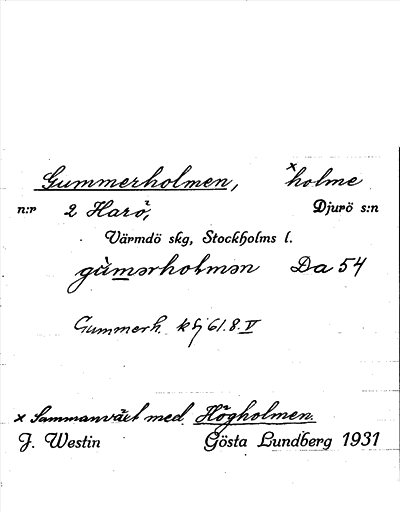 Gummerholmen, ˣholme
n:r 2 Harö, Djurö s:n
Värmdö skg, Stockholms l.
gùmərholmən Da 54
Gummerh. 61.8.V
x Sammanväxt med Högholmen.
J. Westin Gösta Lundberg 1931